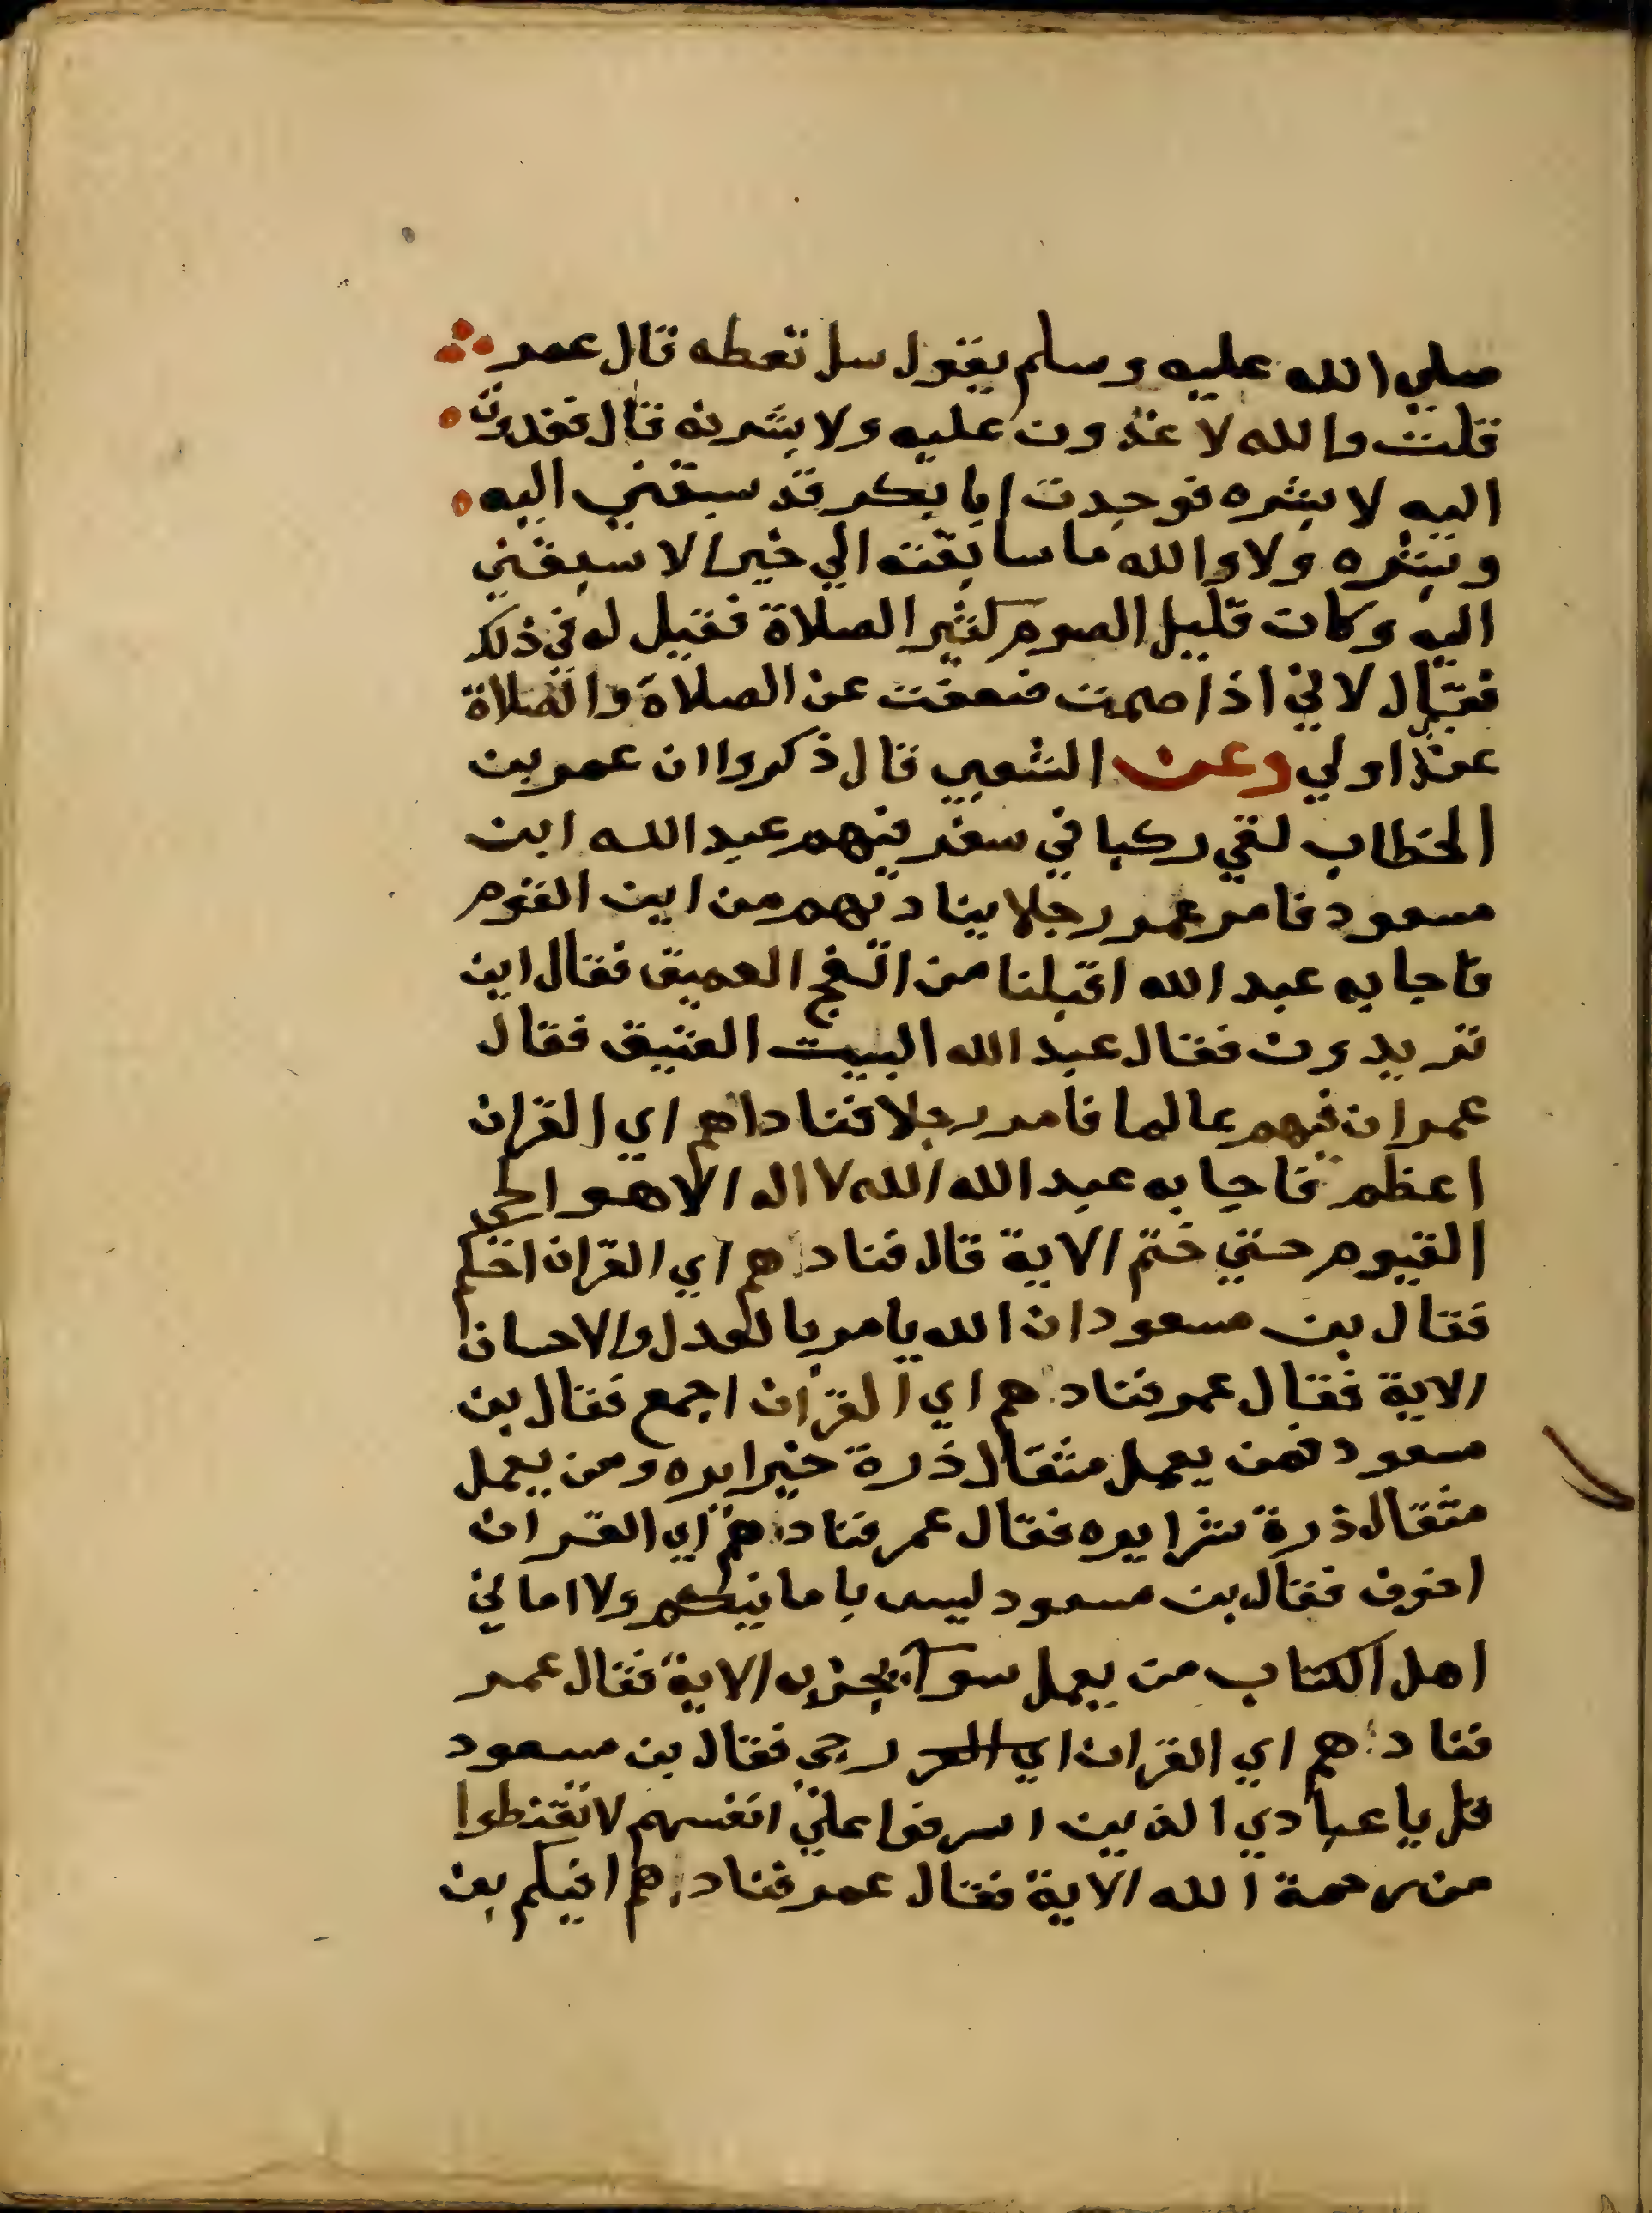 صلي الله عليه وسلم يقول سل تعطه قال عمر
قلت والله لاغذون عليه ولابشرنه قال فغدوت
اليه لابشره فوجدت ابا بكر قد سبقني اليه
وبشره ولا والله ما سابقته الي خير الا سبقني
اليه وكان قليل الصوم كثير الصلاة فقيل له في ذلك
فقال لاني اذا صمت ضعفت عن الصلاة والصلاة
عندي اولي وعن الشعبي قال ذكروا ان عمر بن
الخطاب لقي ركبا في سفر فيهم عبد الله ابن
مسعود فامر عمر رجلا يناديهم من اين القوم
فاجابه عبد الله اقبلنا من الفج العميق فقال اين
تريدون فقال عبد الله البيت العتيق فقال
عمر ان فيهم عالما فامر رجلا فناداهم اي القران
اعظم فاجابه عبد الله الله لا اله الا هو الحي
القيوم حتي ختم الاية قال فنادهم اي القران احكم
فقال بن مسعود ان الله يامر بالعدل والاحسان
الاية فقال عمر فنادهم اي القران اجمع فقال بن
مسعود فمن يعمل مثقال ذرة خيرا يره ومن يعمل
مثقال ذرة شرا يره فقال عمر فنادهم اي القران
اخوف فقال بن مسعود ليس بامانيكم ولا اماني
اهل الكتاب من يعمل سوآ يجز به الاية فقال عمر
فنادهم اي القران اي الر رجي فقال بن مسعود
قل يا عبادي الذين اسرفوا علي انفسهم لا تقنطوا
من رحمة الله الاية فقال عمر فنادهم افيكم بن